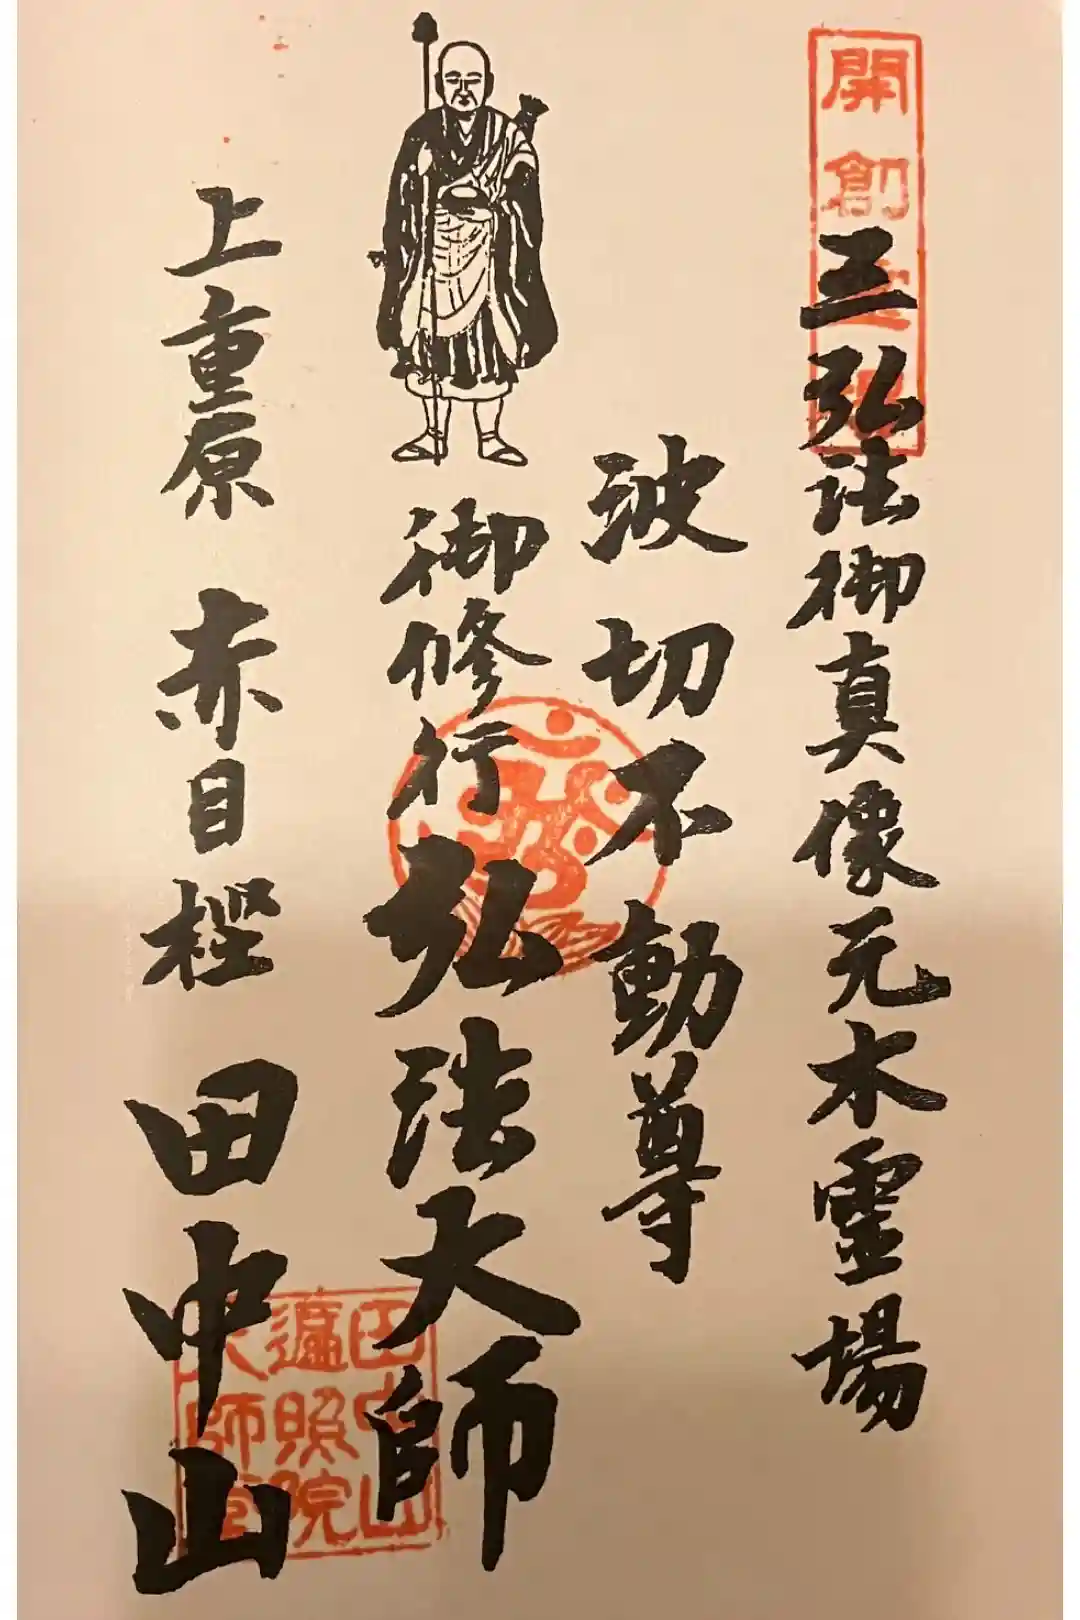 開創
三弘法御真像元木霊場
波切不動尊
御修行弘法大師
上重原 赤目樫 田中山
田中山
遍照院
大師